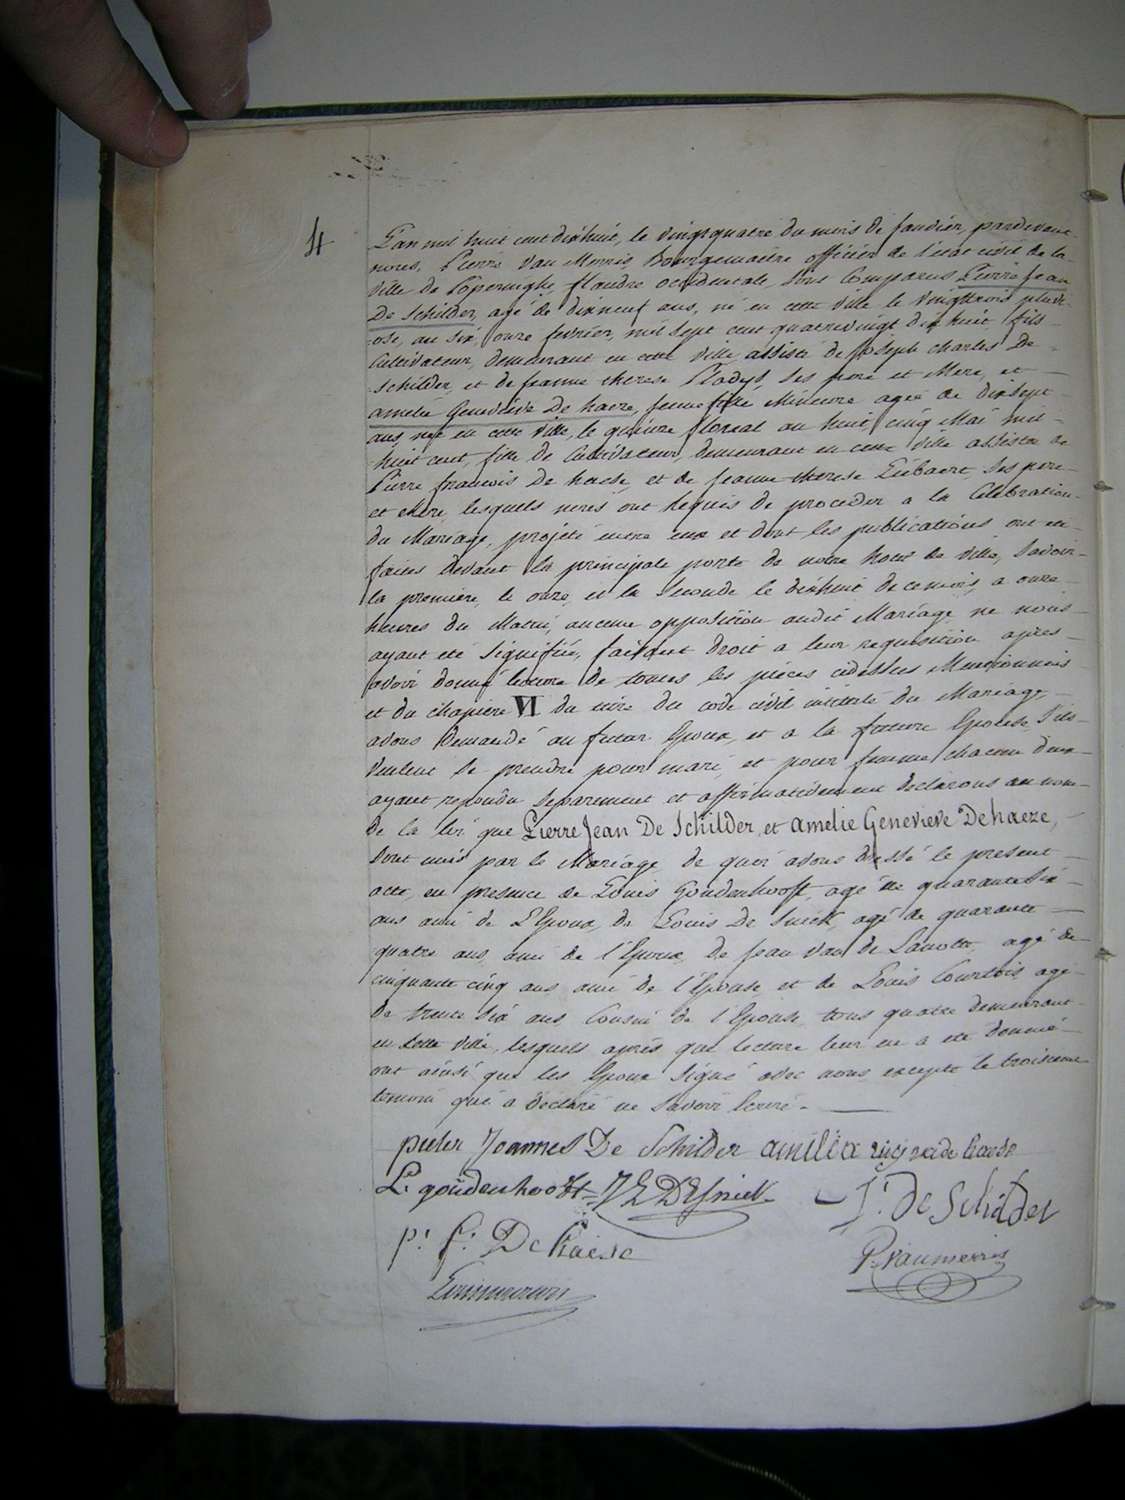 4
L'an mil huit cent dixhuit, le vingtquatre du mois de Janvier, pardevant
nous, Pierre Van Merris, Bourgemaitre officier de l'état civil de la
ville de Poperinghe, flandre occidentale, sont Comparus Pierre Jean
De Schilder, agé de dixneuf ans, né en cette ville le vingttrois pluvi-
ose, an six, onze fevrier, mil sept cent quatrevingt dix huit, fils
Cultivateur, demeurant en cette ville, assisté de Joseph Charles De
Schilder, et de Jeanne therese Cladys, ses pere et Mere, et
amelie Genevieve De haeze, jeune fille Mineure agée de dixsept
ans, née en cette ville, le quinze floreal an huit, cinq Mai mil
huit cent, fille de Cultivateur, demeurant en cette ville assistée de
Pierre francois De haese, et de Jeanne therese Liebaert, ses pere
et mere, lesquels nous ont Requis de proceder a la Celebration
du Mariage, projété entre eux et dont les publications ont été
faites devant la principale porte de notre hotel de ville, Savoir
la premiere, le onze, et la Seconde le dixhuit de ce mois, a onze
heures du Matin, aucune opposition audit Mariage ne nous
ayant eté Signifiée, faisant droit a leur requisition après
avoir donné lecture de toutes les pièces cidessus Mentionnées
et du chapitre VI du titre du code civil intitulé du Mariage,
avons Demandé au futur Epoux, et a la future Epouse, S'ils
veulent se prendre pour mari, et pour femme, chacun deux
ayant repondu Separement et affirmativement declarons au nom
de la loi que Pierre Jean De Schilder, et amelie Genevieve Dehaeze,
Sont unis par le Mariage, de quoi avons dressé le present
acte, en presence de Louis Goudenhooft, agé de quarante six
ans ami de L'Epoux, de Louis De Snick, agé de quarante
quatre ans, ami de l'Epoux, de Jean Van de Lanotte, agé de
cinquante cinq ans ami de l'Epouse et de Louis Courtois agé
de trente Six ans, Cousin de l'Epouse, tous quatre demeurant
en cette ville, lesquels après que lecture leur en a eté donnée
ont ainsi que les Epoux Signé avec nous excepté le troisieme
temoin qui a declaré ne savoir Ecrire.
pieter Joannes De Schilder amilia de haese
L. goudenhooft J L DESnick
J. De Schilder
p. f. De haese
P. vanmerris